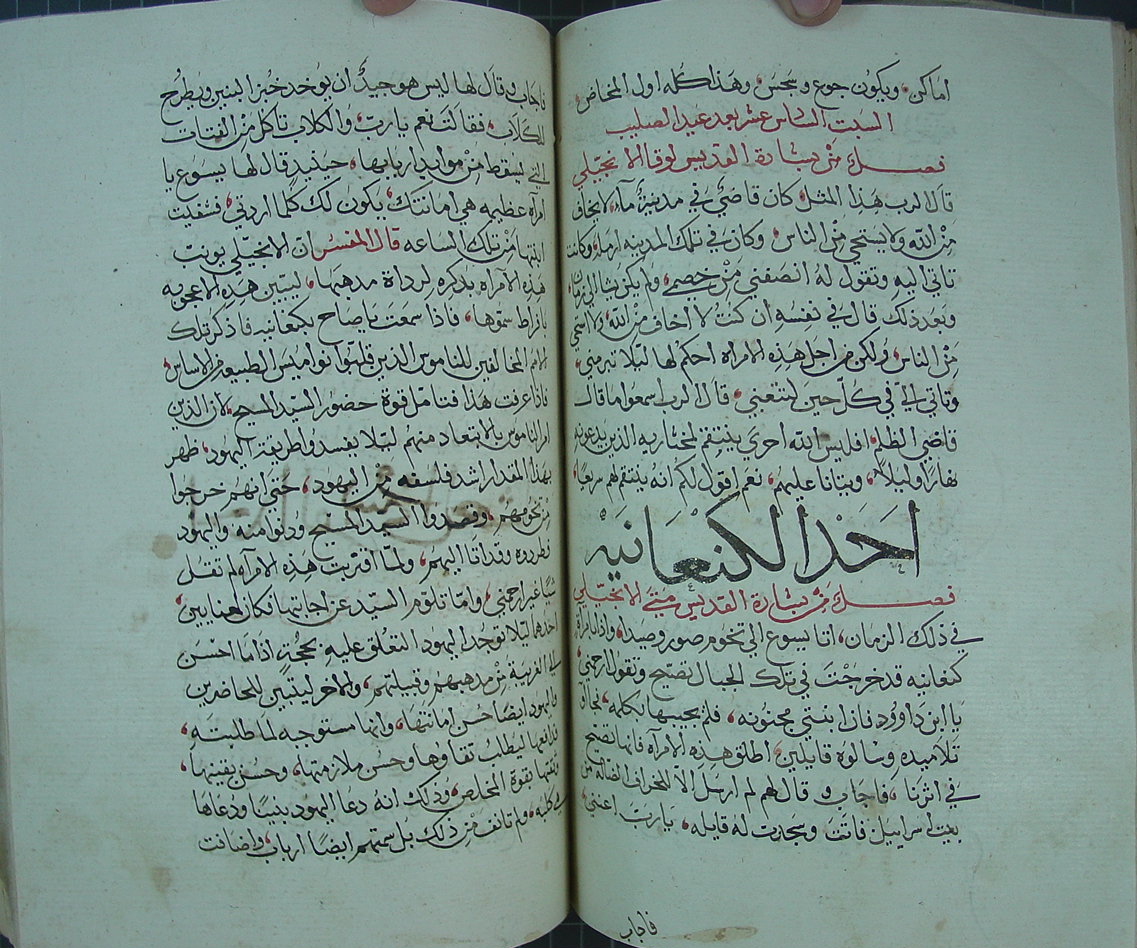 اماكن، ويكون جوع وسجس، وهذا كله اول المخاض،
السبت السادس عشر بعد عيد الصليب
فصل من بشارة القديس لوقا الانجيلي
قال الرب هذا المثل، كان قاضي في مدينة ما، لا يخاف
من الله ولا يستحي من الناس، وكان في تلك المدينه ارمله وكانت
تاتي اليه وتقول له انصفني من خصمي، ولم يكن يشا الي زمان،
وبعد ذلك قال في نفسه ان كنت لا اخاف من الله، ولا استحي
من الناس، ولكن من اجل هذه الامراه احكم لها ليلا تبرمني،
وتاتي الي في كل حين لتتعبني، قال الرب اسمعوا ما قال
قاضي الظلم، افليس الله احري ينتقم لمختاريه الذين يدعونه
نهارًا وليلاً، ويتانا عليهم، نعم اقول لكم انه ينتقم لهم سريعًا،
احد الكنعانيه
فصل من بشارة القديس متي الانجيلي
في ذلك الزمان، اتا يسوع الي تخوم صور وصيدا، واذا بامراة
كنعانيه قد خرجت في تلك الجبال تصيح وتقول ارحمني،
يا ابن داوود فان ابنتي مجنونه، فلم يجيبها بكلمه، فجاؤ
تلاميذه وسالوه قايلين، اطلق هذه الامراه فانها تصيح
في اثرنا، فاجاب وقال لهم لم ارسل الا للخراف الضاله من
بيت اسراييل فاتت وسجدت له قايله، يا رب اعنني،
فاجاب
فاجاب وقال لها ليس هو جيدٌ ان يوخد خبز البنين ويطرح
للكلاب، فقالت نعم يا رب، والكلاب تاكل من الفتات
التي تسقط من موايد اربابها، حينيد قال لها يسوع يا
امراه عظيمه هي امانتك، يكون لك كلما اردتي، فشفيت
ابنتها من تلك الساعه قال المفسر ان الانجيلي يونب
هذه الامراه بدكره لرداة مدهبها، ليبين هده الاعجوبه
بافراط سموها، فاذا سمعت يا صاح بكنعانيه فادكر تلك
الامم المخالفين للناموس الذين قلبوا نواميس الطبيعه من الاساس،
فاذا عرفت هذا فتامل قوة حضور السيد المسيح، لان الذين
امر الناموس بالابتعاد منهم ليلا يفسدوا طريقة اليهود، ظهر
بهذا المقدار اشد فلسفه من اليهود، حتي انهم خرجوا
من تخومهم، وقصدوا السيد المسيح ودنوا منه واليهود
طردوه وقد اتا اليهم، ولما اقتربت هذه الامراه لم تقل
شيًا غير ارحمني، واما تلوم السيد عن اجابتها فكان لمعنايين،
احدهما ليلا توجد اليهود التعلق عليه بحجةٍ اذا ما احسن
الي الغريبة من مدهبهم وقبيلتهم، والاخر ليتبين للحاضرين
واليهود ايضا حسن امانتها، وانها مستوجبه لما طلبته،
فدافعها ليطلب تقاوها وحسن ملازمتها، وحسن يقينها،
وثقتها بقوة المخلص، وذلك انه دعا اليهود بنينًا ودعاها
هي كلبه، ولم تانف من ذلك بل سمتهم ايضًا ارباب، واضافت